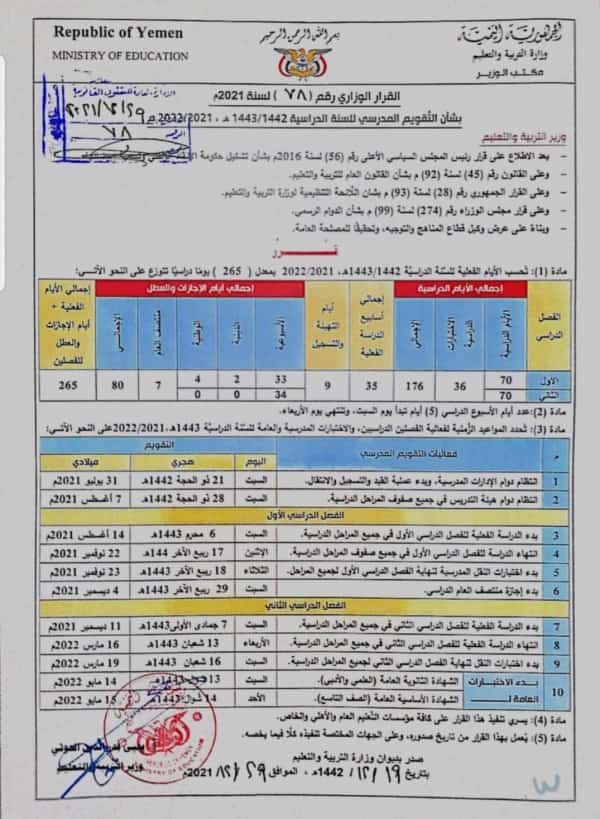 Republic of Yemen
MINISTRY OF EDUCATION
بسم الله الرحمن الرحيم
الجمهورية اليمنية
وزارة التربية والتعليم
مكتب الوزير
القرار الوزاري رقم (٧٨) لسنة 2021م
بشأن التقويم المدرسي للسنة الدراسية 1443/1442هـ ، 2022/2021م
وزير التربية والتعليم
– بعد الاطلاع على قرار رئيس المجلس السياسي الأعلى رقم (56) لسنة 2016م بشأن تشكيل حكومة
– وعلى القانون رقم (45) لسنة (92) م بشأن القانون العام للتربية والتعليم.
– وعلى القرار الجمهوري رقم (28) لسنة (93) م بشأن اللائحة التنظيمية لوزارة التربية والتعليم.
– وعلى قرار مجلس الوزراء رقم (274) لسنة (99) م بشأن الدوام الرسمي.
– وبناءً على عرض وكيل قطاع المناهج والتوجيه، وتحقيقًا للمصلحة العامة.
قـــرر
مادة (1): تُحسب الأيام الفعلية للسنة الدراسية 1443/1442هـ، 2022/2021م بمعدل (265) يومًا دراسيًا تتوزع على النحو الآتـي:
الفصل الدراسي
إجمالي الأيام الدراسية
إجمالي أسابيع الدراسة الفعلية
أيام التهيئة والتسجيل
إجمالي أيام الإجازات والعطل
إجمالي الأيام الفعلية + أيام الإجازات والعطل للفصلين
الأيام الدراسية
الاختبارات الدراسية
الإجمالي
الأسبوعية
الوطنية
منتصف العام
الإجمالـــي
الأول 70 36 176 35 9 33 2 4 7 80 265
الثاني 70 34 0 0
مادة (2): عدد أيام الأسبوع الدراسي (5) أيام تبدأ يوم السبت، وتنتهي يوم الأربعاء.
مادة (3): تُحدد المواعيد الزمنية لفعالية الفصلين الدراسيين، والاختبارات المدرسية والعامة للسنة الدراسية 1443هـ، 2022/2021م على النحو الآتـي:
م فعاليات التقويم المدرسي التقويم
اليوم هجري ميلادي
1 انتظام دوام الإدارات المدرسية، وبدء عملية القيد والتسجيل والانتقال. السبت 21 ذو الحجة 1442هـ 31 يوليو 2021م
2 انتظام دوام هيئة التدريس في جميع صفوف المراحل الدراسية. السبت 28 ذو الحجة 1442هـ 7 أغسطس 2021م
الفصل الدراسي الأول
3 بدء الدراسة الفعلية للفصل الدراسي الأول في جميع المراحل الدراسية. السبت 6 محرم 1443هـ 14 أغسطس 2021م
4 انتهاء الدراسة للفصل الدراسي الأول في جميع صفوف المراحل الدراسية. الإثنين 17 ربيع الآخر 144هـ 22 نوفمبر 2021م
5 بدء اختبارات النقل المدرسية لنهاية الفصل الدراسي الأول لجميع المراحل. الثلاثاء 18 ربيع الآخر 1443هـ 23 نوفمبر 2021م
6 بدء إجازة منتصف العام الدراسي. السبت 29 ربيع الآخر 1443هـ 4 ديسمبر 2021م
الفصل الدراسي الثاني
7 بدء الدراسة الفعلية للفصل الدراسي الثاني في جميع المراحل الدراسية. السبت 7 جمادى الأولى 1443هـ 11 ديسمبر 2021م
8 انتهاء الدراسة الفعلية للفصل الدراسي الثاني في جميع المراحل الدراسية. الأربعاء 13 شعبان 1443هـ 16 مارس 2022م
9 بدء اختبارات النقل لنهاية الفصل الدراسي الثاني لجميع المراحل الدراسية. السبت 16 شعبان 1443هـ 19 مارس 2022م
10 بدء الاختبارات العامة لـ الشهادة الثانوية العامة (العلمي والأدبي). السبت 13 شوال 1443هـ 14 مايو 2022م
الشهادة الأساسية العامة (الصف التاسع). الأحد 14 شوال 1443هـ 15 مايو 2022م
مادة (4): يسري تنفيذ هذا القرار على كافة مؤسسات التعليم العام والأهلي والخاص.
مادة (5): يُعمل بهذا القرار من تاريخ صدوره، وعلى الجهات المختصة تنفيذه كلًا فيما يخصه.
صدر بديوان وزارة التربية والتعليم
بتاريخ ١٩/١٢/1442هـ ، الموافق
وزير التربية والتعليم